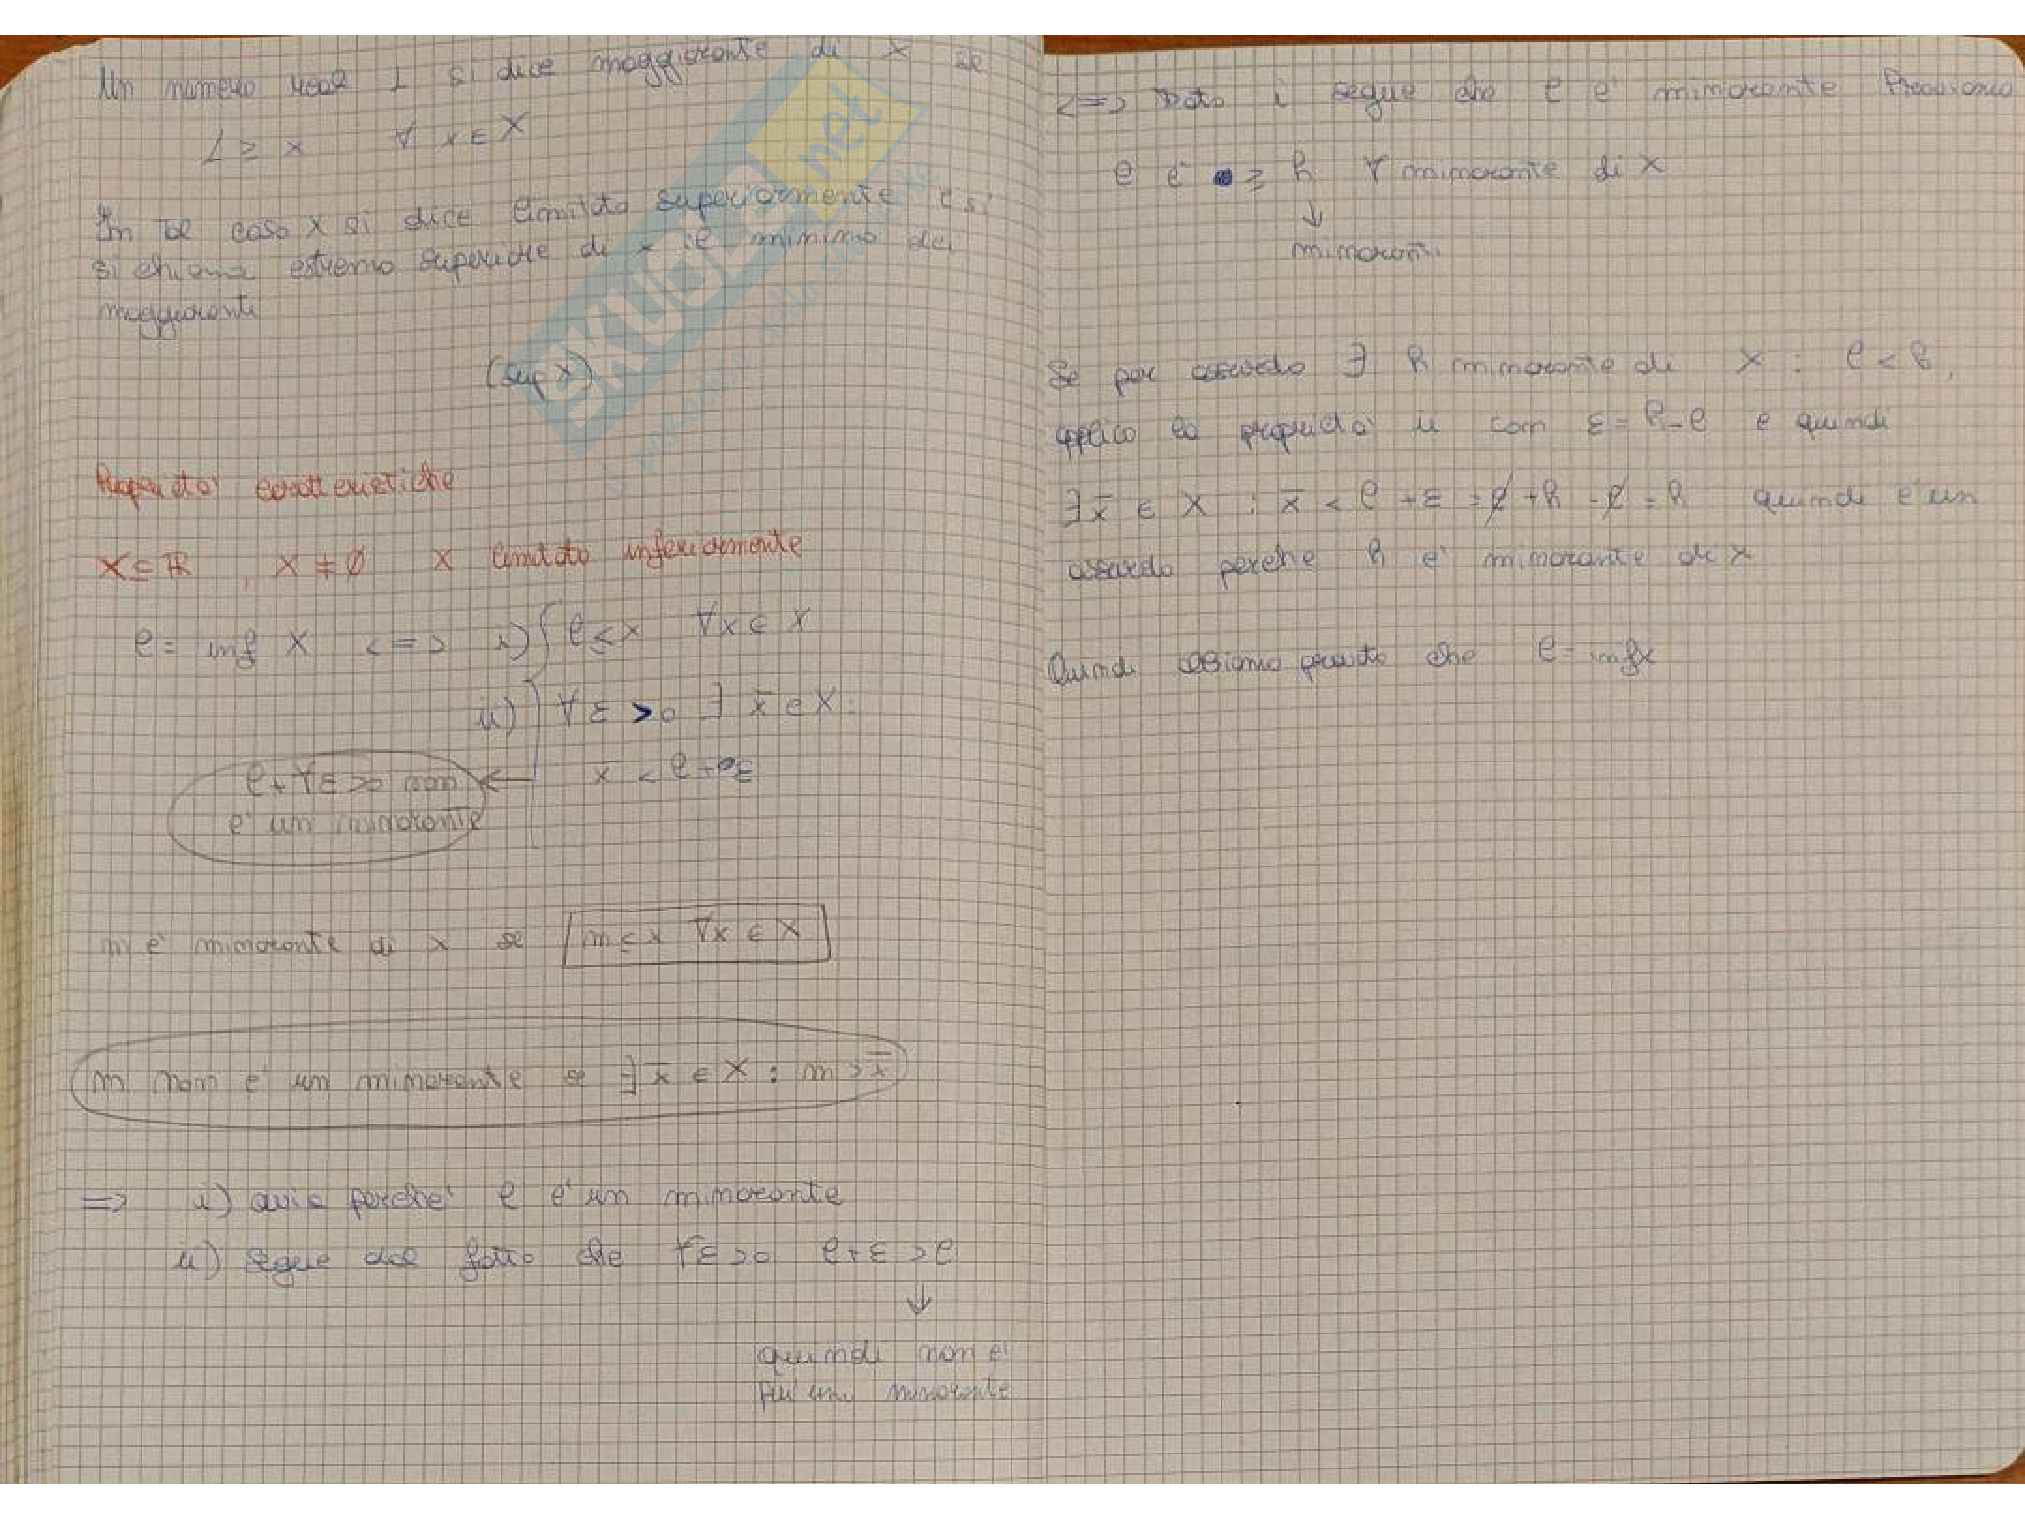 Un numero reale L si dice maggiorante di X se
L ≥ x ∀ x ∈ X
In tal caso X si dice limitato superiormente e si
si chiama estremo superiore di x il minimo dei
maggioranti
(sup X)
SKUOLA.net
Proprietà caratteristiche
X ⊆ ℝ , X ≠ ∅ X limitato inferiormente
l = inf X <=> i) { l ≤ x ∀x ∈ X
ii) ∀ ε > 0 ∃ x̄ ∈ X :
x̄ < l + ε
l + ∀ε > 0 non
e' un minorante
m e' minorante di x se m ≤ x ∀x ∈ X
m non e' un minorante se ∃ x̄ ∈ X : m > x̄
=> i) ovvia perche' l e' un minorante
ii) segue dal fatto che ∀ε > 0 l + ε > l
↓
quindi non e'
più un minorante
<=> Dato i segue che l e' minorante Proviamo
l e' ≥ h ∀ minorante di X
↓
minoranti
Se per assurdo ∃ h minorante di X : l < h,
applico la proprietà ii con ε = h - l e quindi
∃ x̄ ∈ X : x̄ < l + ε = l + h - l = h quindi e' un
assurdo perche h e' minorante di x
Quindi abbiamo provato che l = inf x